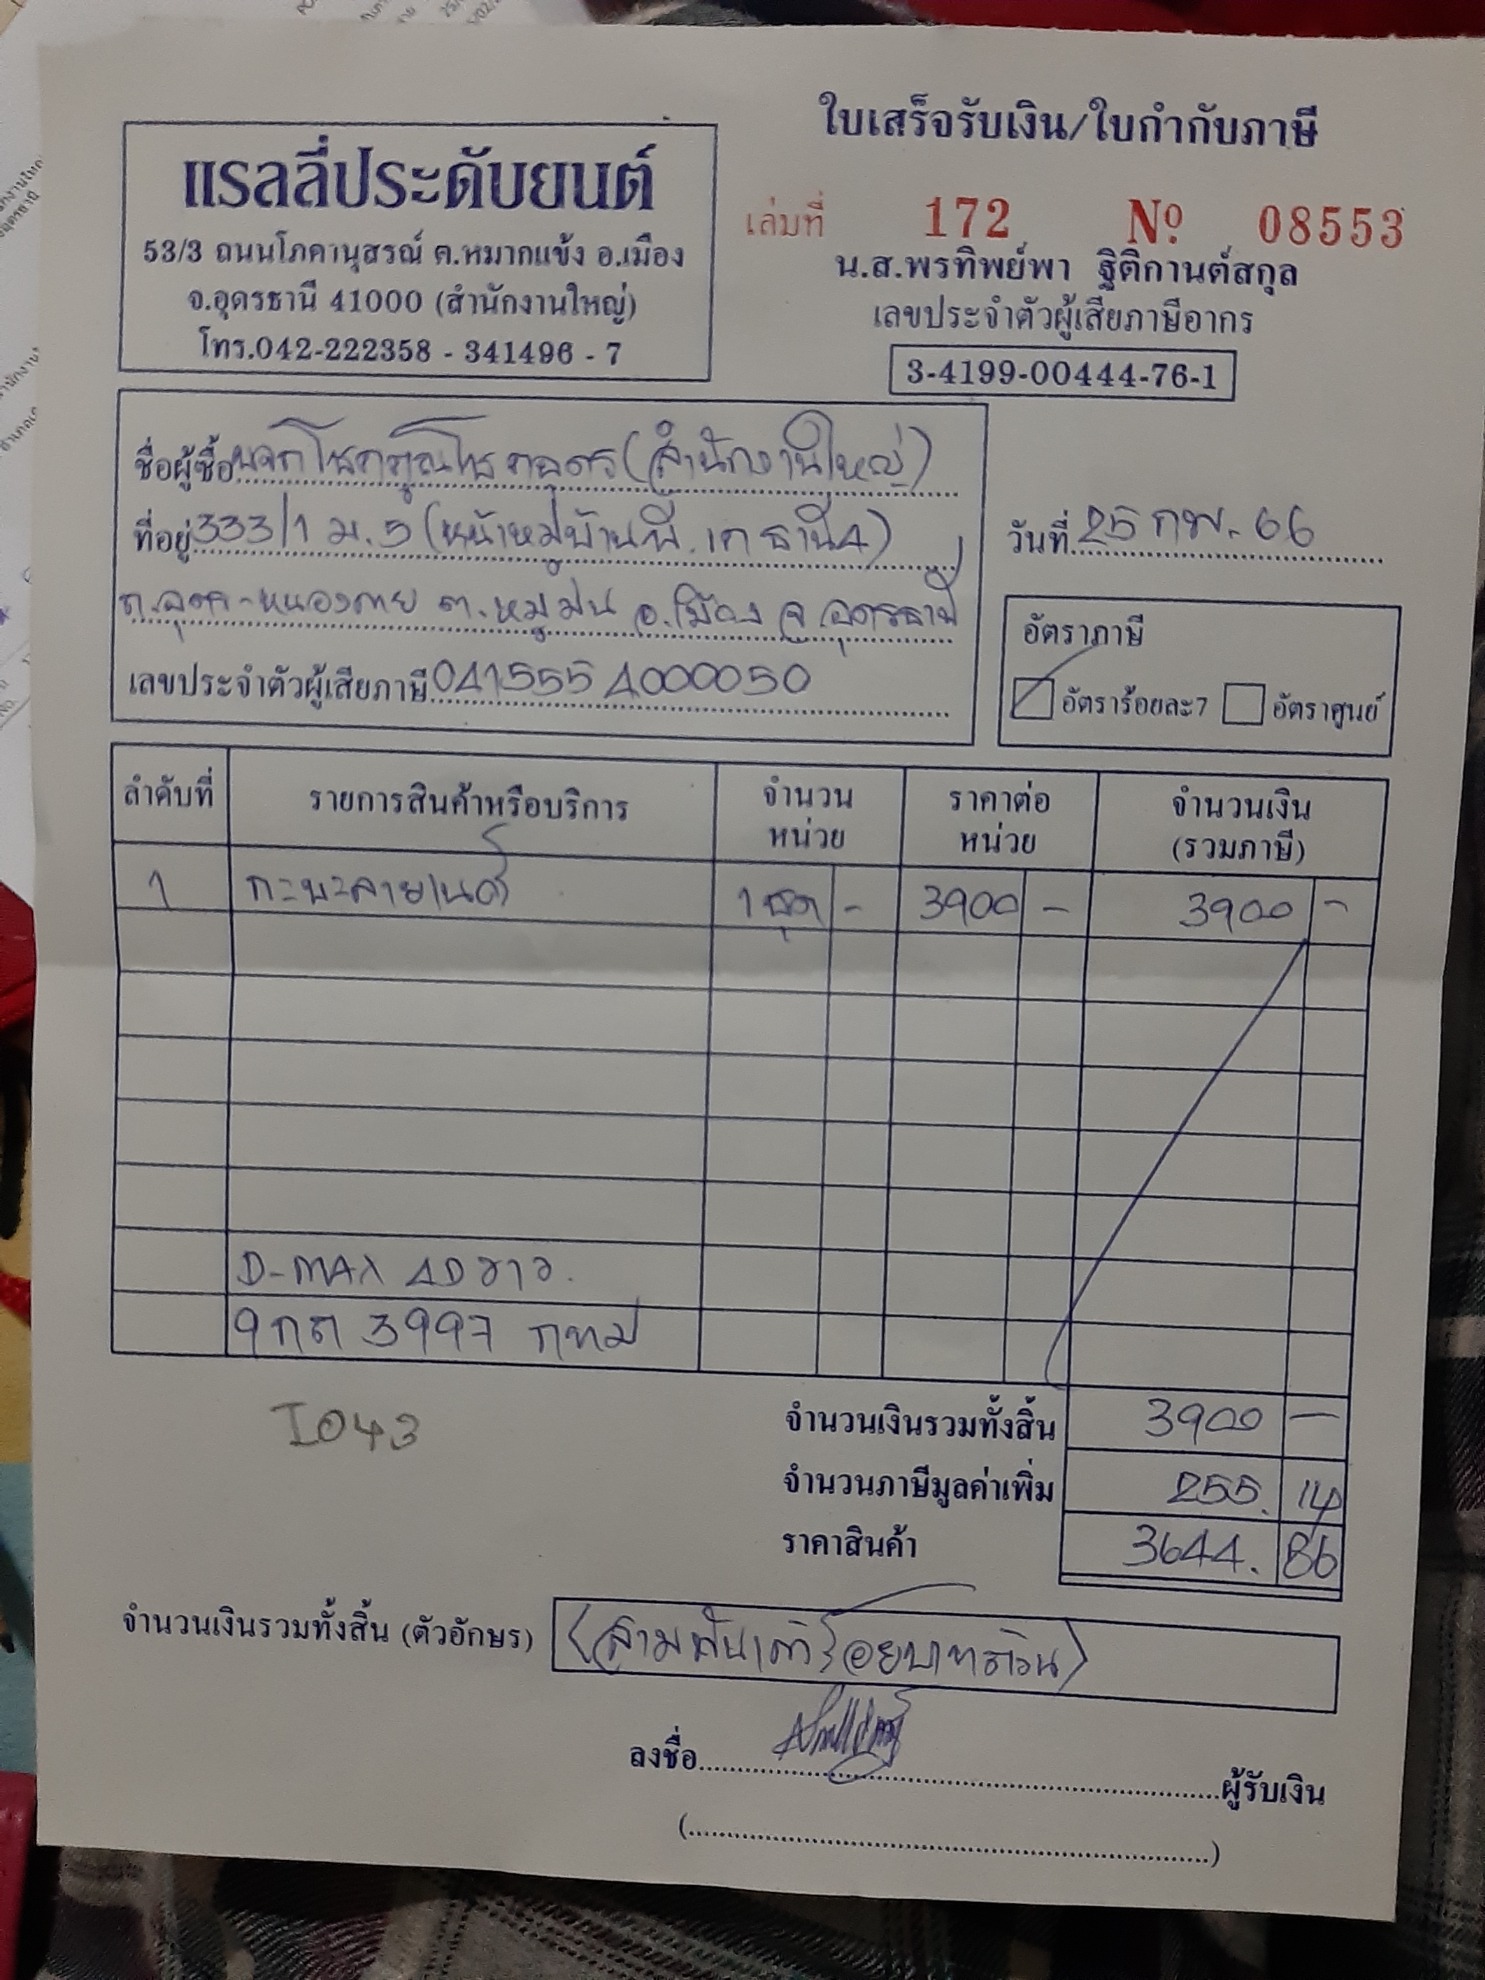 ใบเสร็จรับเงิน/ใบกำกับภาษี
แรลลี่ประดับยนต์
53/3 ถนนโภคานุสรณ์ ต.หมากแข้ง อ.เมือง
จ.อุดรธานี 41000 (สำนักงานใหญ่)
โทร.042-222358 - 341496 - 7
เล่มที่ 172 Nº 08553
น.ส.พรทิพย์พา ฐิติกานต์สกุล
เลขประจำตัวผู้เสียภาษีอากร
3-4199-00444-76-1
ชื่อผู้ซื้อ หจก โชคคูณโชคอุดร (สำนักงานใหญ่)
ที่อยู่ 333/1 ม.5 (หน้าหมู่บ้านพี.เค ธานี4)
ถ.อุดร-หนองคาย ต.หมูม่น อ.เมือง จ.อุดรธานี
เลขประจำตัวผู้เสียภาษี 0415554000050
วันที่ 25 กพ. 66
อัตราภาษี
อัตราร้อยละ7 อัตราศูนย์
ลำดับที่ รายการสินค้าหรือบริการ จำนวนหน่วย ราคาต่อหน่วย จำนวนเงิน (รวมภาษี)
1 กะบะลายเนอร์ 1 ชุด - 3900 - 3900 -
D-MAX 4D ขาว.
9กต 3997 กทม
I043
จำนวนเงินรวมทั้งสิ้น 3900 -
จำนวนภาษีมูลค่าเพิ่ม 255. 14
ราคาสินค้า 3644. 86
จำนวนเงินรวมทั้งสิ้น (ตัวอักษร) (สามพันเก้าร้อยบาทถ้วน)
ลงชื่อ ผู้รับเงิน